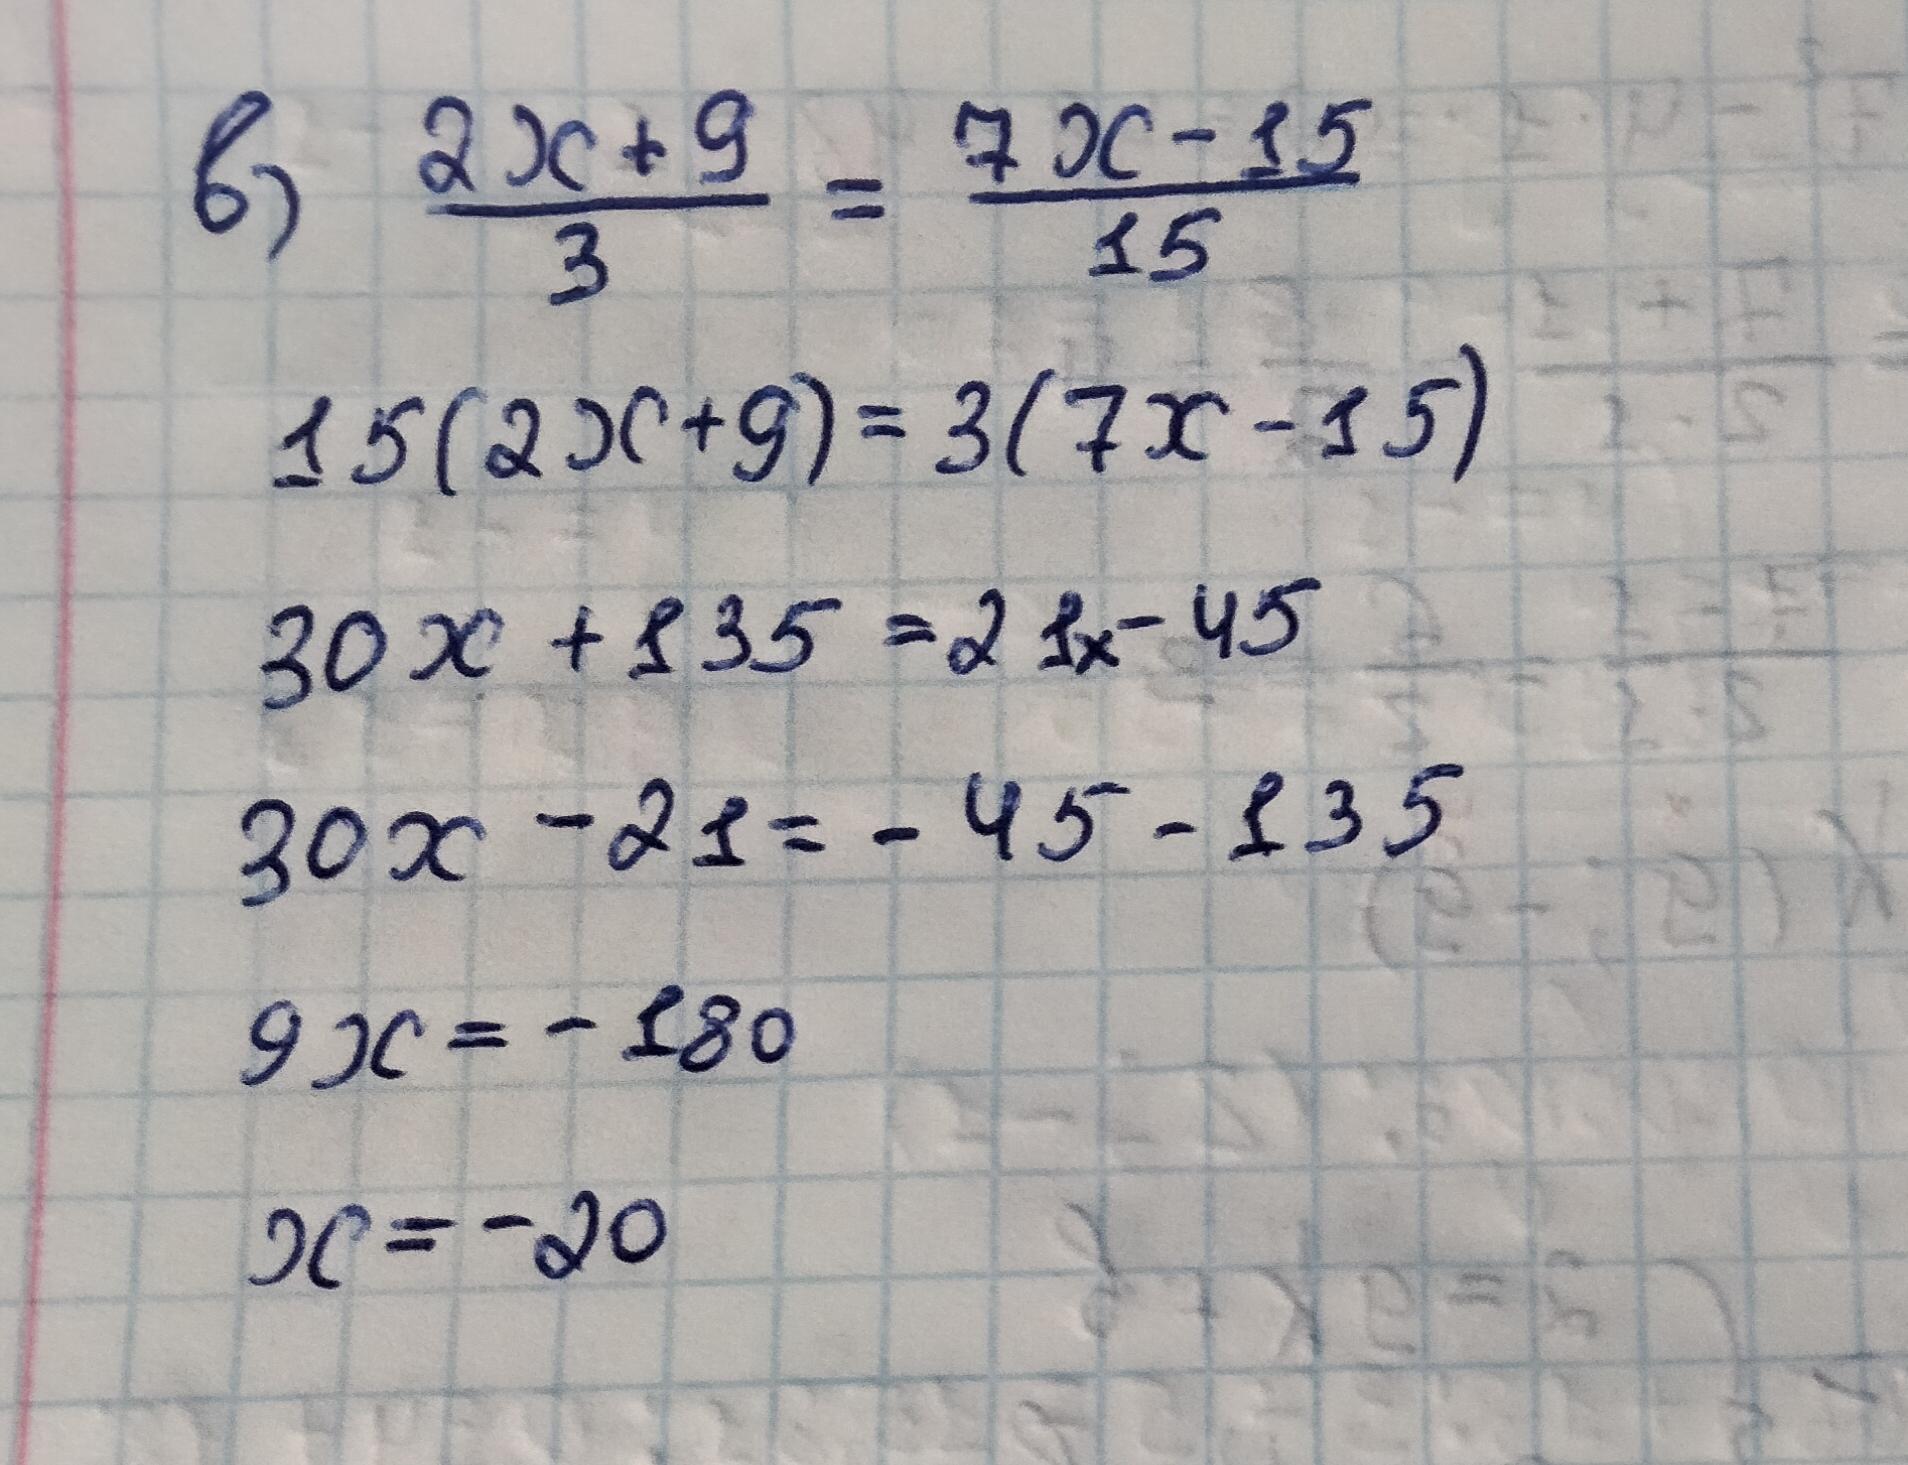 в) (2x+9)/3 = (7x-15)/15
15(2x+9)=3(7x-15)
30x+135=21x-45
30x-21=-45-135
9x=-180
x=-20